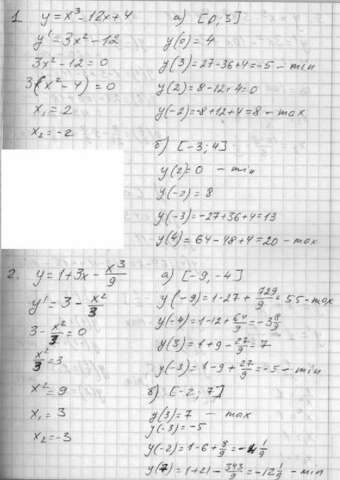 1. y = x³ - 12x + 4
y' = 3x² - 12
3x² - 12 = 0
3(x² - 4) = 0
x₁ = 2
x₂ = -2
а) [0; 3]
y(0) = 4
y(3) = 27 - 36 + 4 = -5 - min
y(2) = 8 - 12 + 4 = 0
y(-2) = -8 + 12 + 4 = 8 - max
б) [-3; 4]
y(2) = 0 - min
y(-2) = 8
y(-3) = -27 + 36 + 4 = 13
y(4) = 64 - 48 + 4 = 20 - max
2. y = 1 + 3x - x³/9
y' = 3 - x²/3
3 - x²/3 = 0
x²/3 = 3
x² = 9
x₁ = 3
x₂ = -3
а) [-9, -4]
y(-9) = 1 - 27 + 729/9 = 55 - max
y(-4) = 1 - 12 + 64/9 = -3 8/9
y(3) = 1 + 9 - 27/9 = 7
y(-3) = 1 - 9 + 27/9 = -5 - min
б) [-2; 7]
y(3) = 7 - max
y(-3) = -5
y(-2) = 1 - 6 + 8/9 = -4 1/9
y(7) = 1 + 21 - 343/9 = -12 1/9 - min